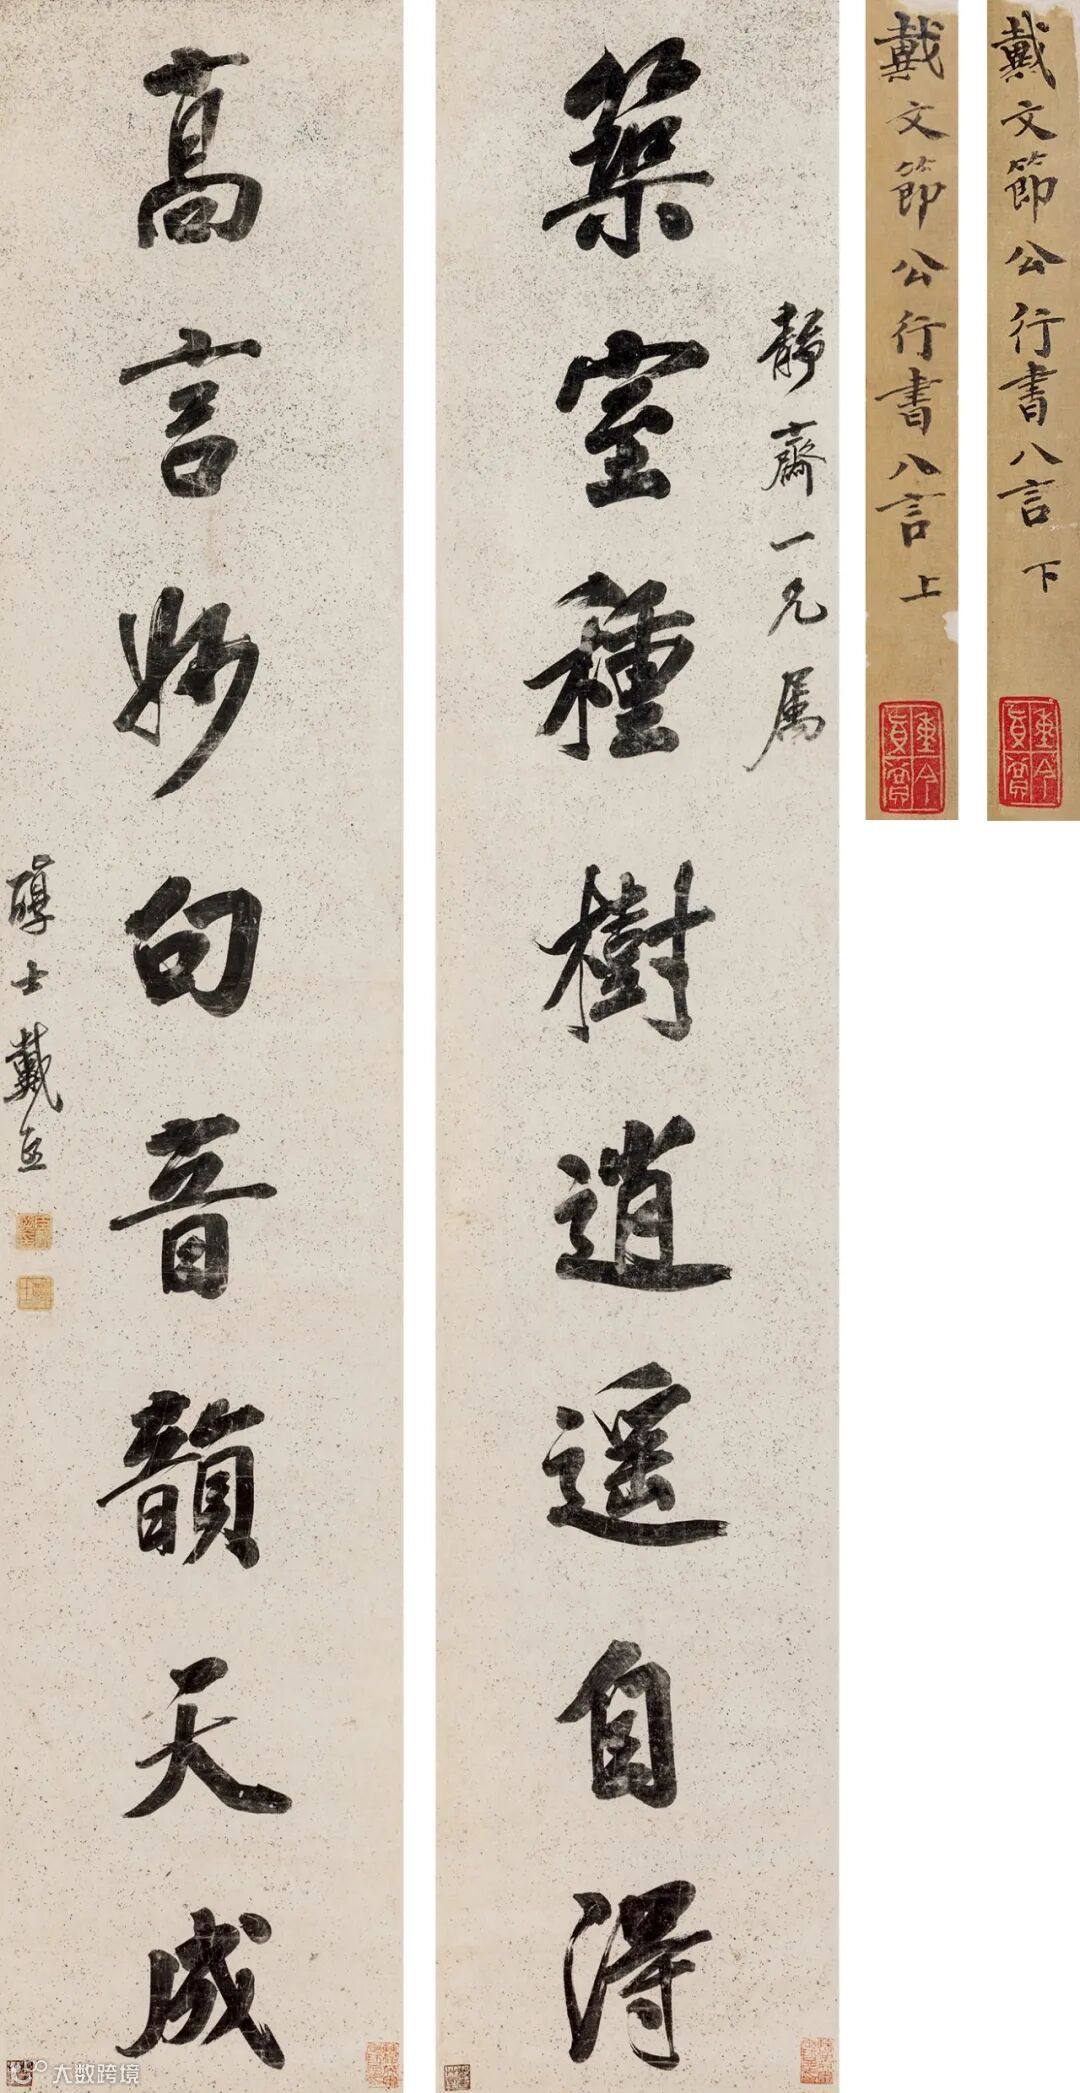 戴文節公行書八言 下
戴文節公行書八言 上
靜齋一兄屬
築室種樹逍遥自得
高言妙句音韻天成
醇士戴熙
大数跨境